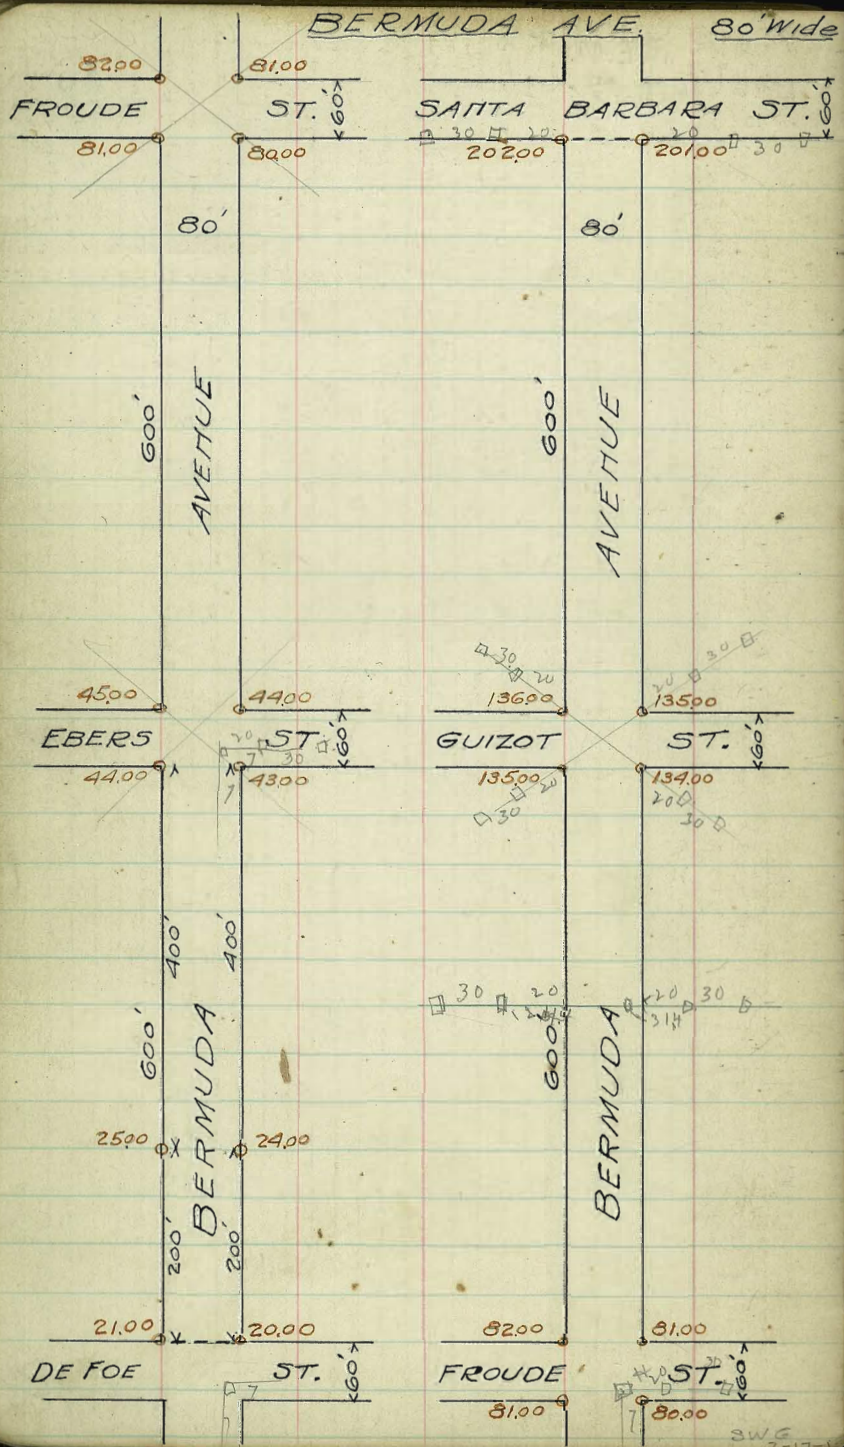 BERMUDA AVE. 80' Wide
82.00 81.00
FROUDE ST. 60'
81.00 80.00
80'
600'
AVENUE
45.00 44.00
EBERS ST. 60'
20
7 30
44.00 43.00
7
400' 400'
600'
BERMUDA
25.00 24.00
200' 200'
21.00 20.00
DE FOE ST. 60'
7
SANTA BARBARA ST. 60'
30 20 20 30
202.00 201.00
80'
600'
AVENUE
30 20 20 30
136.00 135.00
GUIZOT ST. 60'
135.00 134.00
30 20 20 30
30 20 20 30
314
600'
BERMUDA
82.00 81.00
FROUDE ST. 60'
20
7
81.00 80.00
SWG